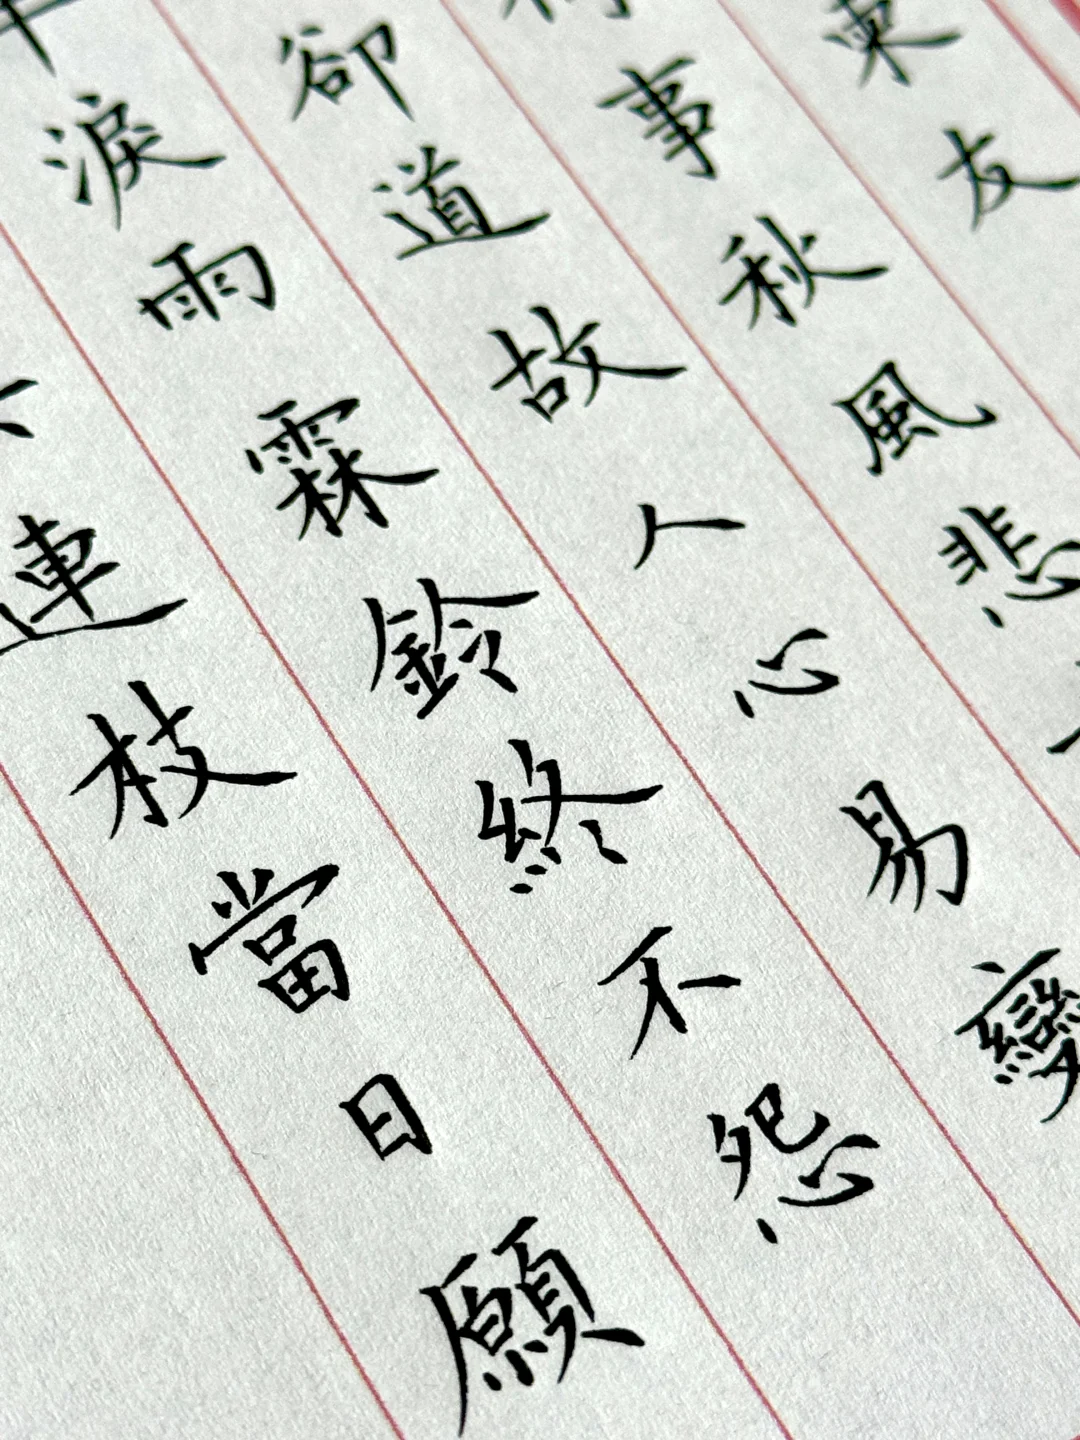 柬友
事秋風悲
卻道故人心易變
淚雨霖鈴終不怨
連枝當日願